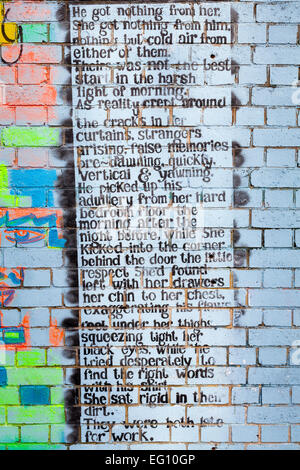 He got nothing from her.
She got nothing from him,
nothing but cold air from
either of them.
Theirs was not the best
start in the harsh
light of morning.
As reality crept around
the cracks in her
curtains, strangers
arising, false memories
pre-dawning, quickly.
Vertical & yawning.
He picked up his
adultery from her hard
bedroom floor the
morning after the
night before, while she
kicked into the corner
behind the door the little
respect she'd found
left with her drawers
her chin to her chest,
exaggerating his
feet under her thighs
squeezing tight her
black eyes, while he
tried desperately to
find the right words
with his shirt.
She sat rigid in their
dirt.
They were both late
for work.
alamy
EG10GP